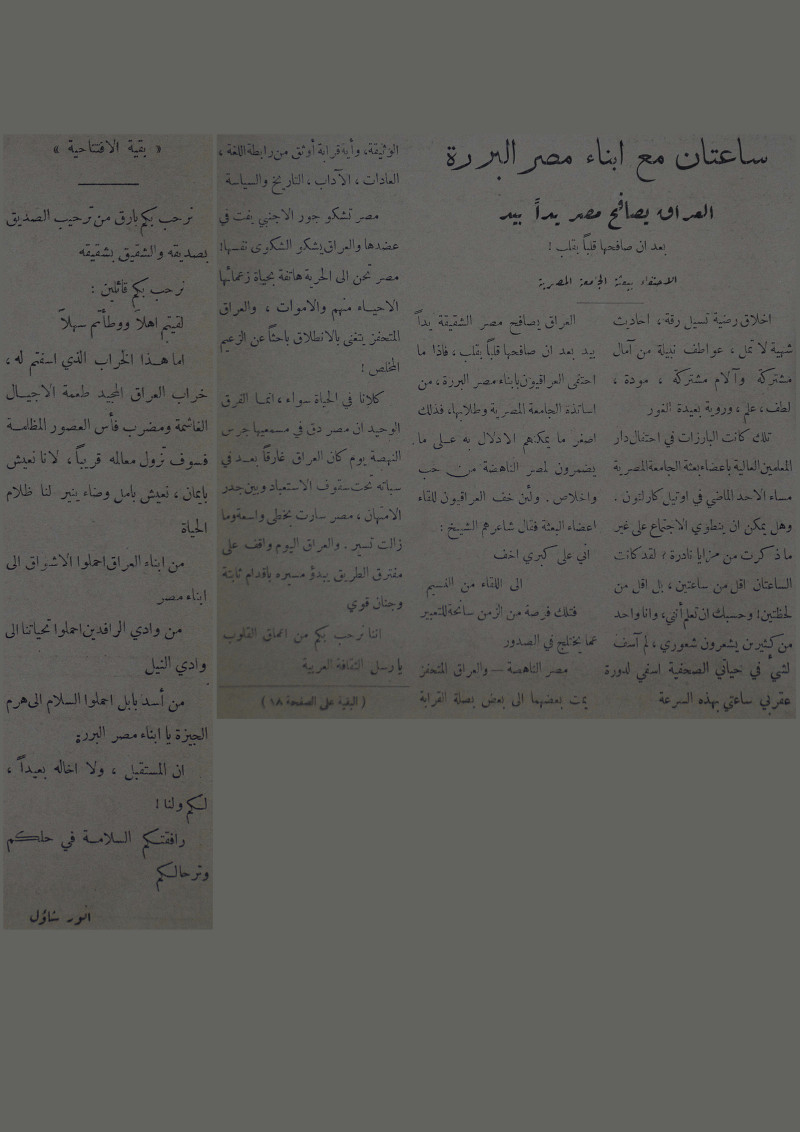 ساعتان مع ابناء مصر البررة
العراق يصافح مصر يداً بيد
بعد ان صافحها قلباً بقلب !
الاحتفاء ببعثة الجامعة المصرية
اخلاق رضية تسيل رقة، احاديث
شهية لا تمل، عواطف نبيلة من آمال
مشتركة وآلام مشتركة ، مودة ،
لطف، علم، وروية بعيدة الغور
تلك كانت البارزات في احتفال دار
المعلمين العالية باعضاء بعثة الجامعة المصرية
مساء الاحد الماضي في اوتيل كارلتون .
وهل يمكن ان ينطوي الاجتماع على غير
ما ذكرت من مزايا نادرة ؟ لقد كانت
الساعتان اقل من ساعتين، بل اقل من
لحظتين! وحسبك ان تعلم أنني، وانا واحد
من كثيرين يشعرون شعوري، لم آسف
لشي في حياتي الصحفية اسفي لدورة
عقربي ساعتي بهذه السرعة
العراق يصافح مصر الشقيقة يداً
بيد بعد ان صافحها قلباً بقلب، فاذا ما
احتفى العراقيون بابناء مصر البررة، من
اساتذة الجامعة المصرية وطلابها، فذلك
اصغر ما يمكنهم الادلال به على ما
يضمرون لمصر الناهضة من حب
واخلاص . ولئن خف العراقيون للقاء
اعضاء البعثة فقال شاعرهم الشيخ :
اني على كبري اخف
الى اللقاء من النسيم
فتلك فرصة من الزمن سانحة للتعبير
عما يختلج في الصدور
مصر الناهضة — والعراق المتحفز
يمت بعضهما الى بعض بصلة القرابة
الوثيقة، وأية قرابة أوثق من رابطة اللغة ،
العادات ، الآداب ، التاريخ والسياسة
مصر تشكو جور الاجنبي يفت في
عضدها والعراق يشكو الشكوى نفسها!
مصر تحن الى الحرية هاتفة بحياة زعمائها
الاحياء منهم والاموات ، والعراق
المتحفز يتغنى بالانطلاق باحثاً عن الزعيم
المخلص !
كلانا في الحياة سواء، انما الفرق
الوحيد ان مصر دق في مسمعيها جرس
النهضة يوم كان العراق غارقاً بعد في
سباته تحت سقوف الاستعباد وبين جدر
الامتهان، مصر سارت بخطى واسعة وما
زالت تسير . والعراق اليوم واقف على
مفترق الطريق يبدؤ مسيره باقدام ثابتة
وجنان قوي
اننا نرحب بكم من اعماق القلوب
يا رسل الثقافة العربية
( البقية على الصفحة ١٨ )
« بقية الافتتاحية »
نرحب بكم بارق من ترحيب الصديق
بصديقه والشقيق بشقيقه
نرحب بكم قائلين :
لقيتم اهلاً ووطأتم سهلاً
اما هذا الخراب الذي اسفتم له ،
خراب العراق المجيد طعمة الاجيال
الغاشمة ومضرب فأس العصور المظلمة
فسوف تزول معالمه قريباً، لاننا نعيش
بايمان، نعيش بامل وضاء ينير لنا ظلام
الحياة
من ابناء العراق احملوا الاشواق الى
ابناء مصر
من وادي الرافدين احملوا تحياتنا الى
وادي النيل
من أسد بابل احملوا السلام الى هرم
الجيزة يا ابناء مصر البررة
ان المستقبل ، ولا اخاله بعيداً ،
لكم ولنا !
رافقتكم السلامة في حلكم
وترحالكم
انور شاؤل